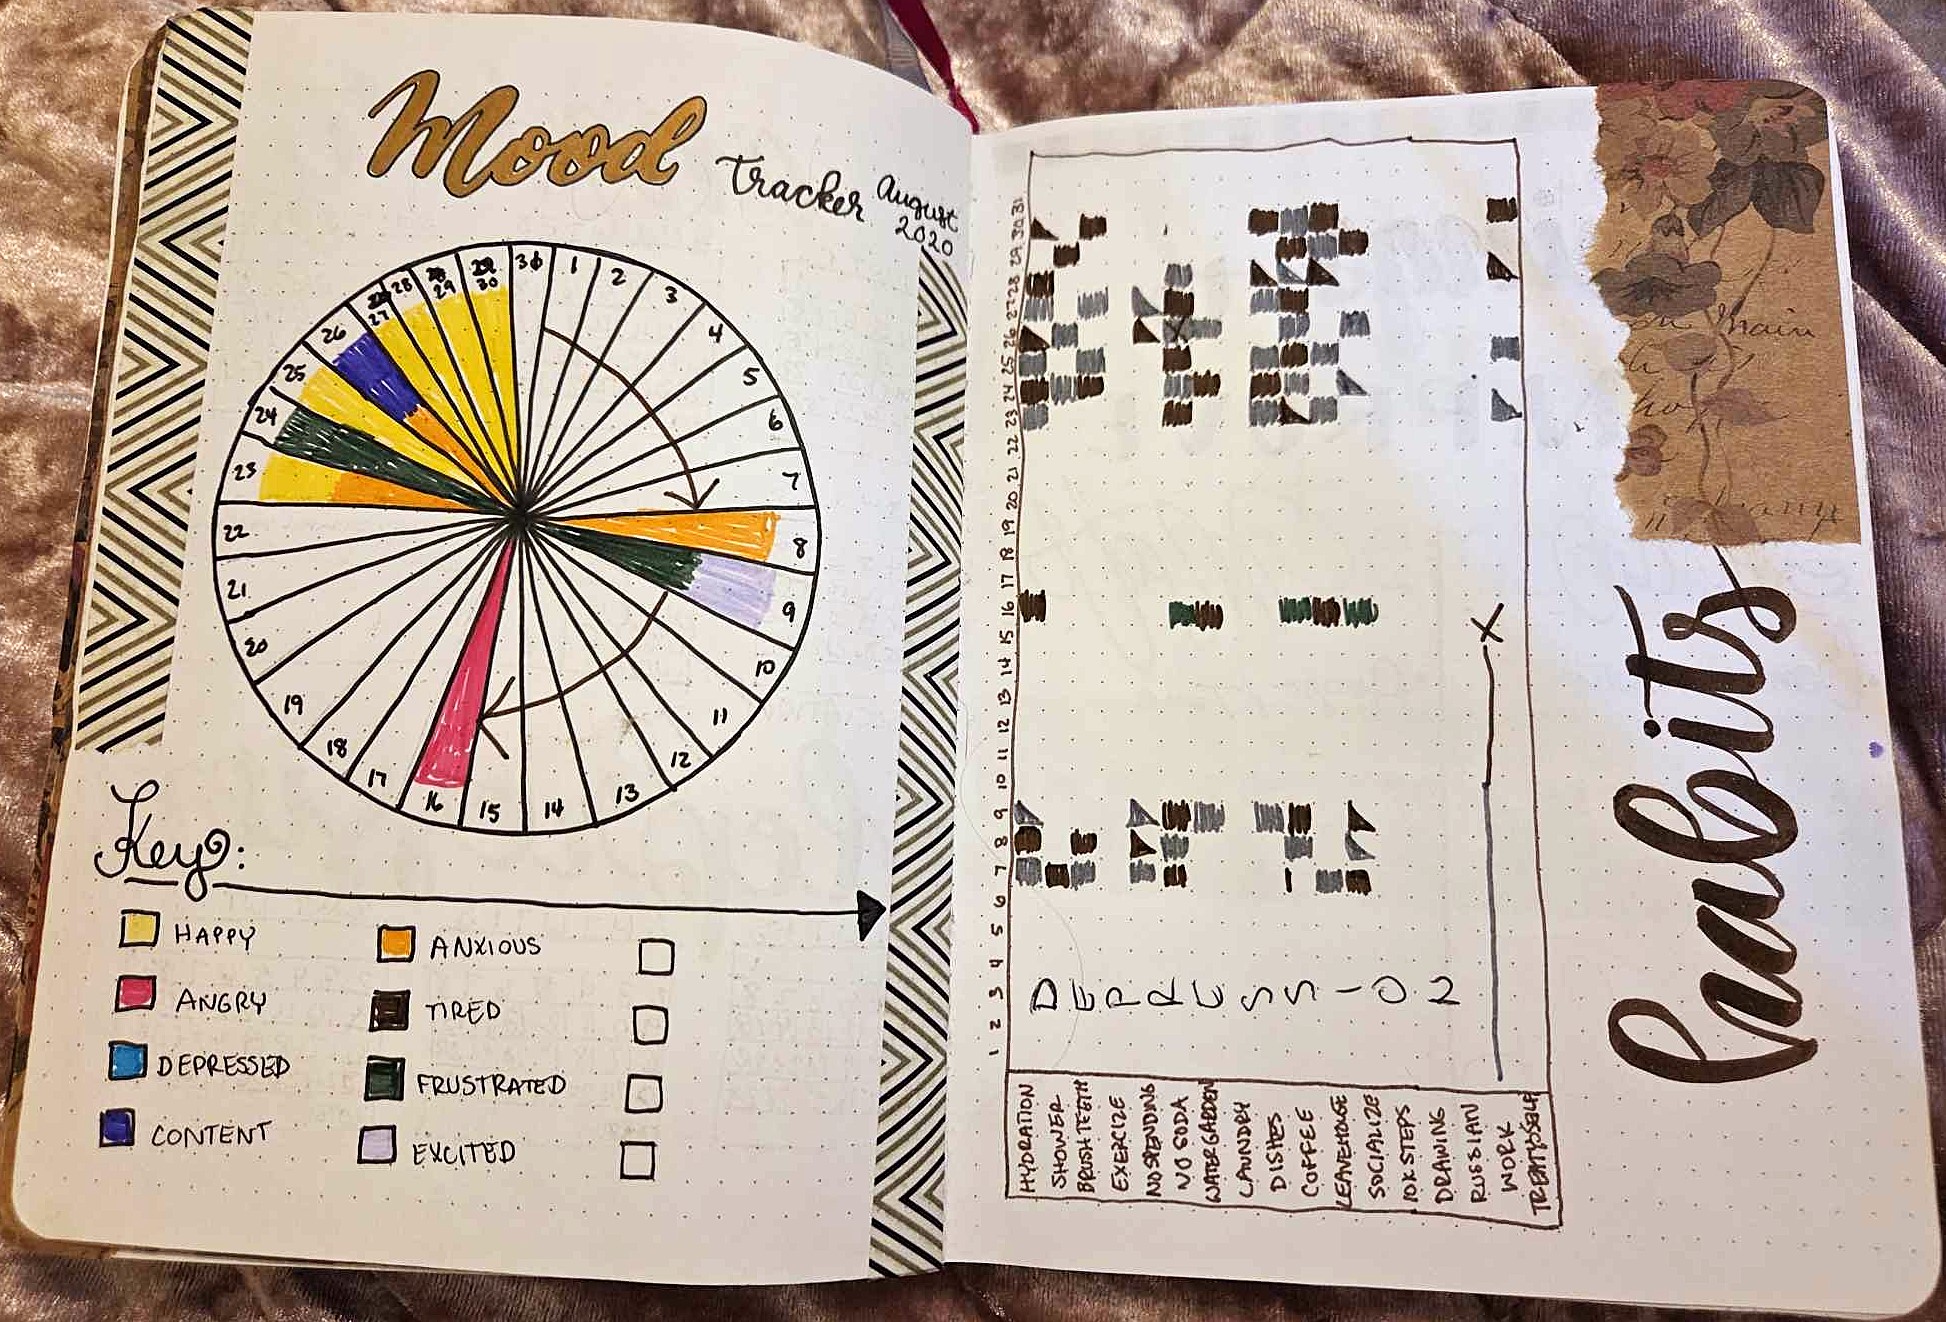 Mood
Tracker August
2020
1
2
3
4
5
6
7
8
9
10
11
12
13
14
15
16
17
18
19
20
21
22
23
24
25
26
27
28
29
30
Key:
HAPPY
ANGRY
DEPRESSED
CONTENT
ANXIOUS
TIRED
FRUSTRATED
EXCITED
habits
1 2 3 4 5 6 7 8 9 10 11 12 13 14 15 16 17 18 19 20 21 22 23 24 25 26 27 28 29 30 31
DEPRESSION
X
HYDRATION
SHOWER
BRUSH TEETH
EXERCIZE
NO SPENDING
NO SODA
WATER GARDEN
LAUNDRY
DISHES
COFFEE
LEAVE HOUSE
SOCIALIZE
10K STEPS
DRAWING
RUSSIAN
WORK
TREAT YOSELF